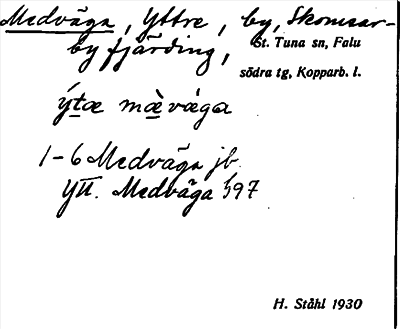 Medväga, Yttre, by, Skomsar-
by fjärding, St. Tuna sn, Falu
södra tg, Kopparb. l.
ýtæ mæ̀vága
1-6 Medväga jb.
Ytt. Medväga 597
H. Ståhl 1930